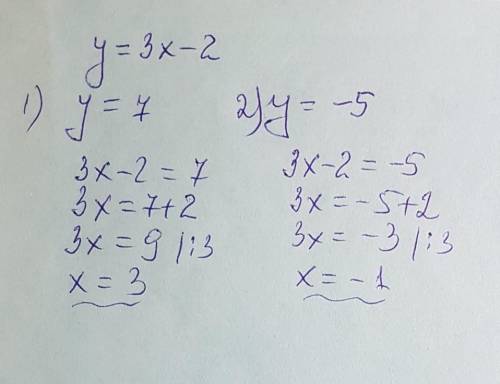 y = 3x - 2
1) y = 7
3x - 2 = 7
3x = 7 + 2
3x = 9 | : 3
x = 3
2) y = -5
3x - 2 = -5
3x = -5 + 2
3x = -3 | : 3
x = -1